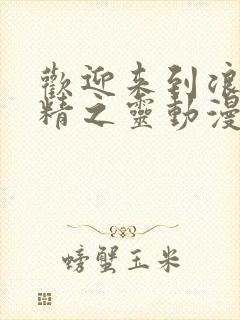 歡迎来到浪
精之靈動漫
螃蟹玉米